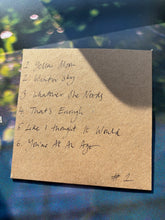 1. Yellow Moon
2. Winter Sky
3. Whatever She Needs
4. That's Enough
5. Like I thought It Would
6. You're At An Age
# 2